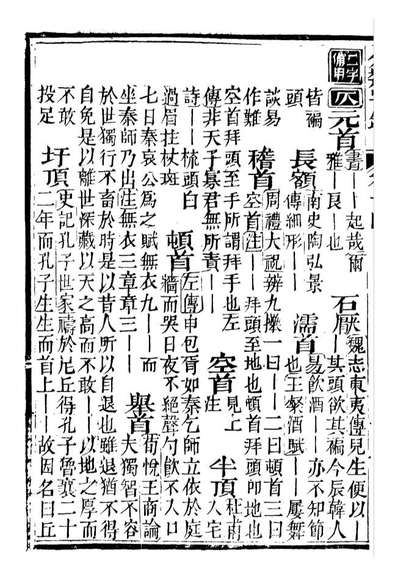 仁字備甲 八 元首 書——起哉爾雅——艮也 石厭 魏志東夷傳兒生便以——其頭欲其褊今辰韓人
皆褊頭 長額 南史陶弘景傳細形—— 濡首 易飲酒——亦不知節也王粲酒賦——屢舞
談易作難 稽首 周禮大祝辨九𢷎一曰——二曰頓首三曰空首注——拜頭至地也頓首拜頭叩地也
空首拜頭至手所謂拜手也左傳非天子寡君無所—— 空首 見上注 半頂 杜甫入宅
詩——梳頭白過眉拄杖斑 頓首 左傳申包胥如秦乞師立依於庭牆而哭日夜不絕聲勺飲不入口
七日秦哀公爲之賦無衣九——而坐秦師乃出注無衣三章章三—— 舉首 荀悅王商論夫獨智不容
於世獨行不畜於時是以昔人所以自退也雖退猶不得自免是以離世深藏以天之高而不敢——以地之厚而
不敢投足 圩頂 史記孔子世家禱於尼丘得孔子魯襄二十二年而孔子生生而首上——故因名曰丘